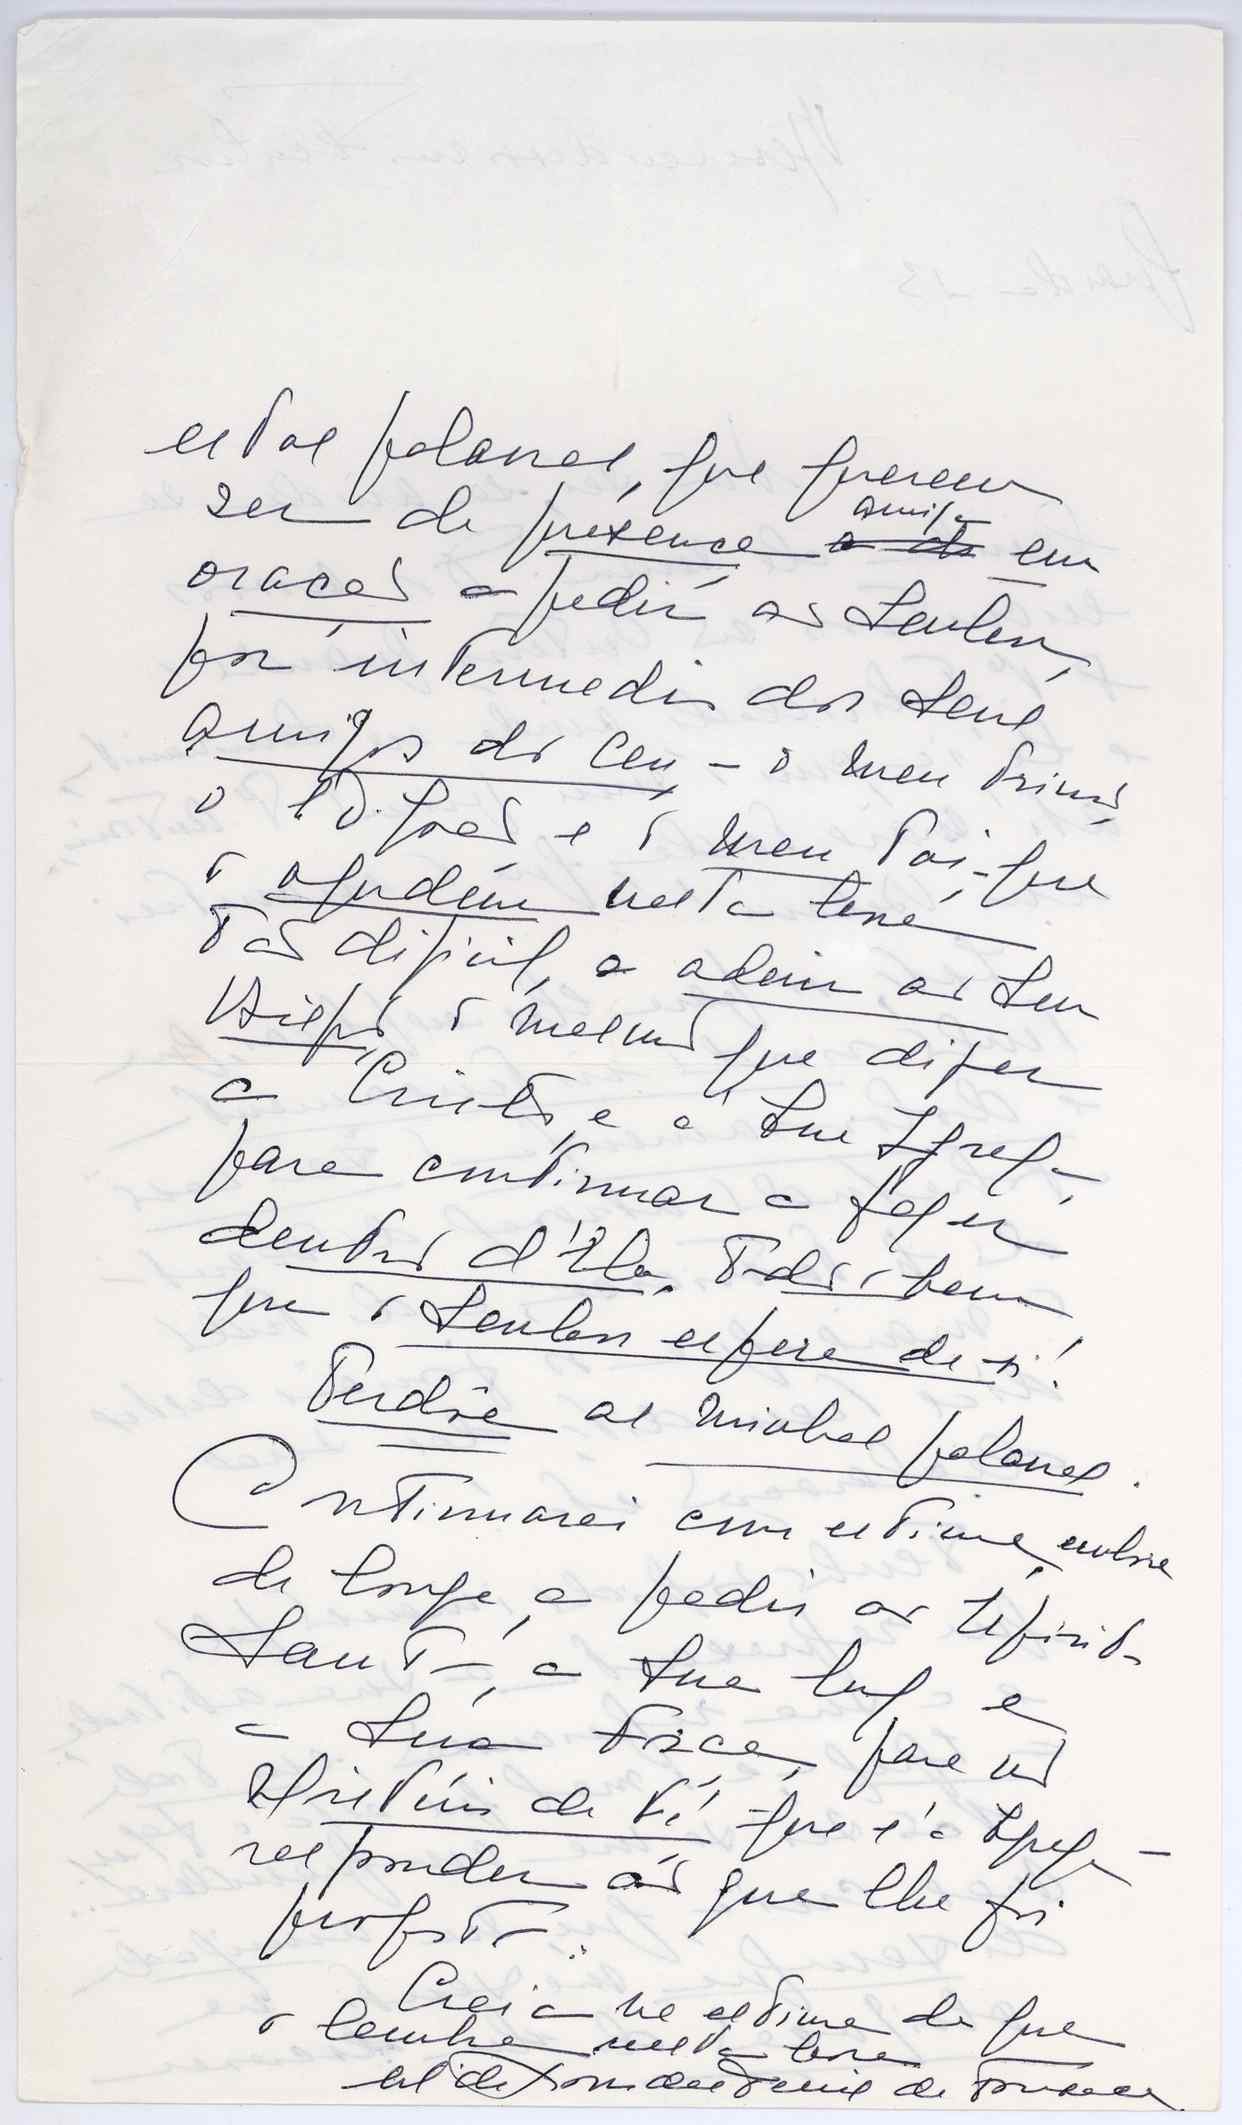 estas palavras, que querem
ser de presença amiga em
oração a pedir ao Senhor,
por intermédio dos seus
amigos do Céu, – o meu Primo,
o P.D. e o meu Pai – que
o ajudem nesta hora
tão difícil, a aderir ao Seu
o mesmo que dizer
a Cristo, e à Sua Igreja,
para continuar a fazer
dentro d'Ela, Todo o bem
que o Senhor espera de si!
Perdôe as minhas palavras.
Continuarei com estima, embora
de longe, a pedir ao Espírito
Santo, a Sua luz e
a Sua Força, para no
Mistério de Fé, que é a Igreja
responder ao que lhe foi
proposto.
Creia na estima de que
o lembra nesta hora